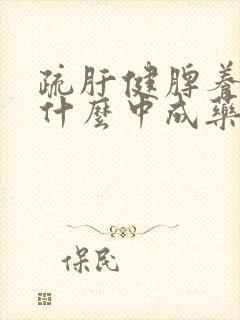 疏肝健脾养
什麼中成藥
保民